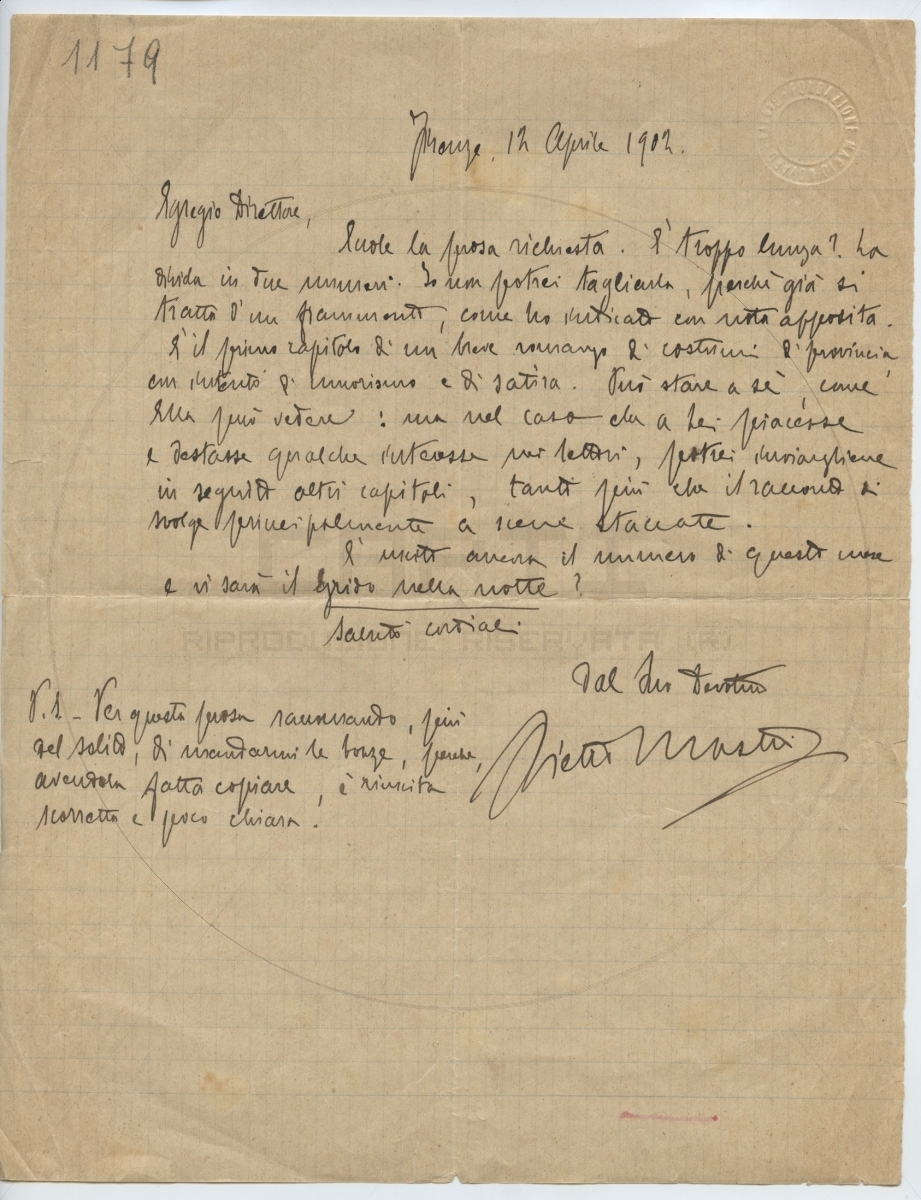 1179
Firenze, 12 Aprile 1902.
Egregio Direttore,
Eccole la prosa richiesta. È troppo lunga? La
divida in due numeri. Io non potrei tagliarla, perchè già si
tratta d'un frammento, come ho indicato con nota apposita.
È il primo capitolo di un breve romanzo di costumi di provincia,
con intento di umorismo e di satira. Può stare a sè, come
Ella può vedere: ma nel caso che a Lei piacesse
e destasse qualche interesse nei lettori, potrei inviargliene
in seguito altri capitoli, tanto più che il racconto si
svolge principalmente a scene staccate.
È uscito ancora il numero di questo mese
e vi sarà il Grido nella notte?
Saluti cordiali
Dal Suo Devotmo
Pietro Mastri
P.S. - Per questa prosa raccomando, più
del solito, di mandarmi le bozze, perchè,
avendola fatta copiare, è riuscita
scorretta e poco chiara.
RIPRODUZIONE RISERVATA (R)